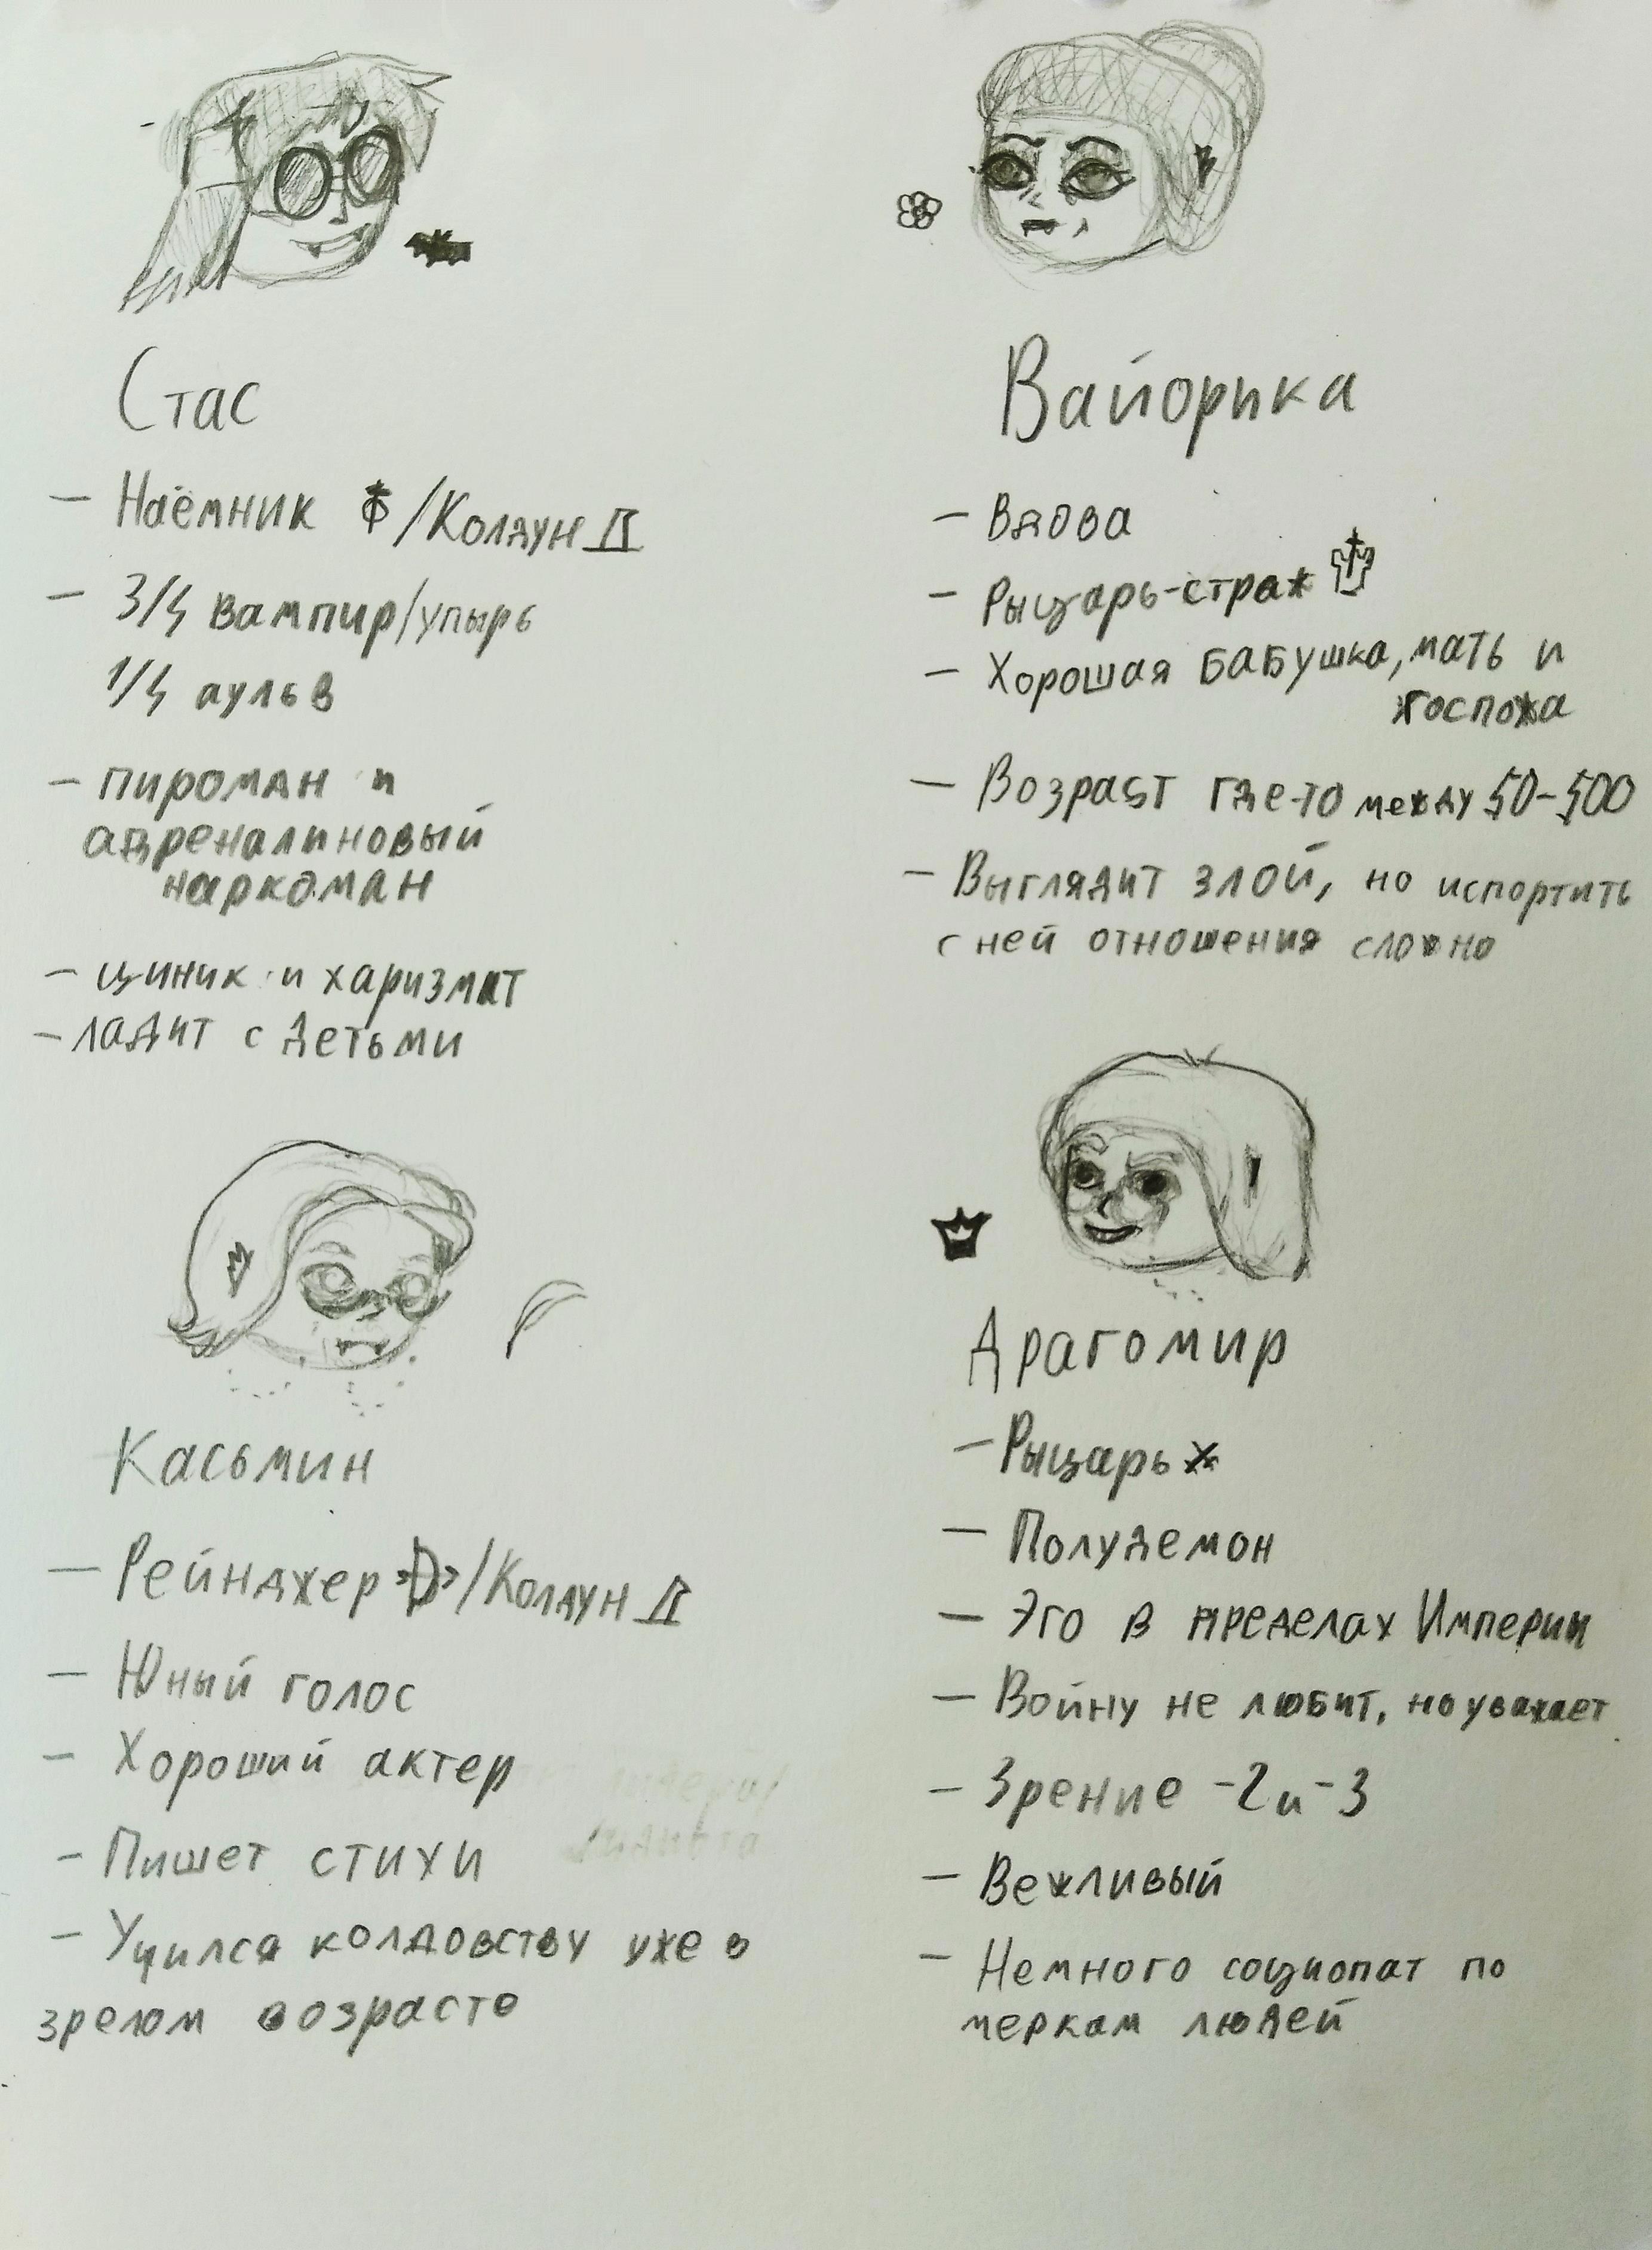 Стас
– Наёмник /Колдун II
– 3/4 вампир/упырь
1/4 аульв
– пироман и
адреналиновый
наркоман
– циник и харизмат
– ладит с детьми
Вайорика
– Вдова
– Рыцарь-страж
– Хорошая бабушка, мать и
госпожа
– Возраст где-то между 50-500
– Выглядит злой, но испортить
с ней отношения сложно
Касьмин
– Рейнджер /Колдун II
– Юный голос
– Хороший актер
– Пишет стихи
– Учился колдовству уже в
зрелом возрасте
Драгомир
– Рыцарь
– Полудемон
– Эго в пределах Империи
– Войну не любит, но уважает
– Зрение -2 и -3
– Вежливый
– Немного социопат по
меркам людей